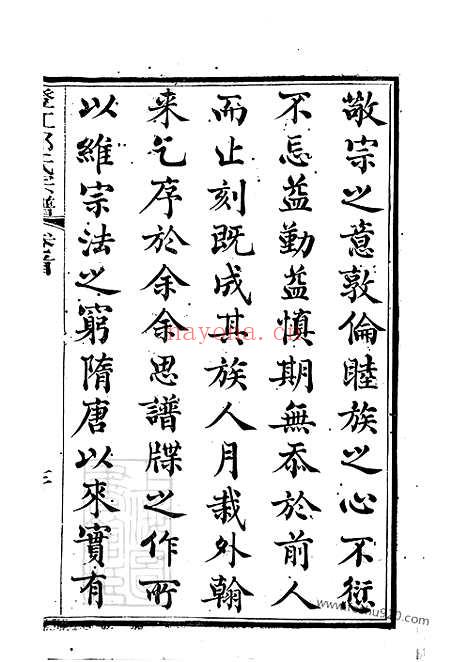 敬宗之意敦倫睦族之心不愆
不忘益勤益慎期無忝於前人
而止刻既成其族人月栽外翰
来乞序於余余思譜牒之作所
以維宗法之窮隋唐以來實有
氏宗譜
卷首
三
nayona.cn